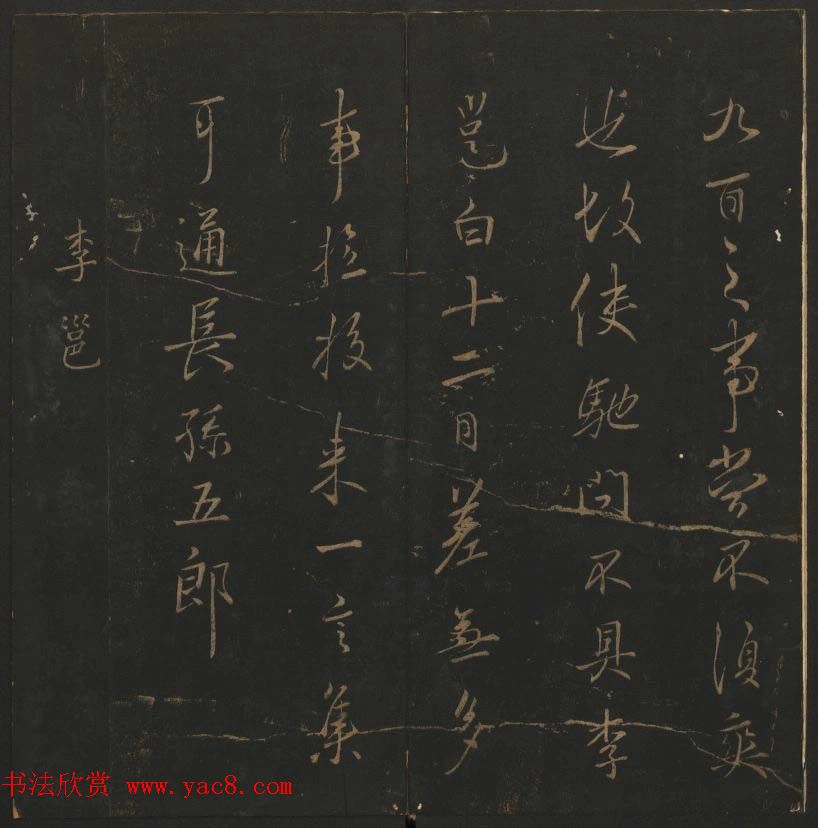 九百之事當不須爽
也故使馳問不具李
邕白十二日差無多
事撿挍来一言集
可通長孫五郎
李邕
书法欣赏 www.yac8.com